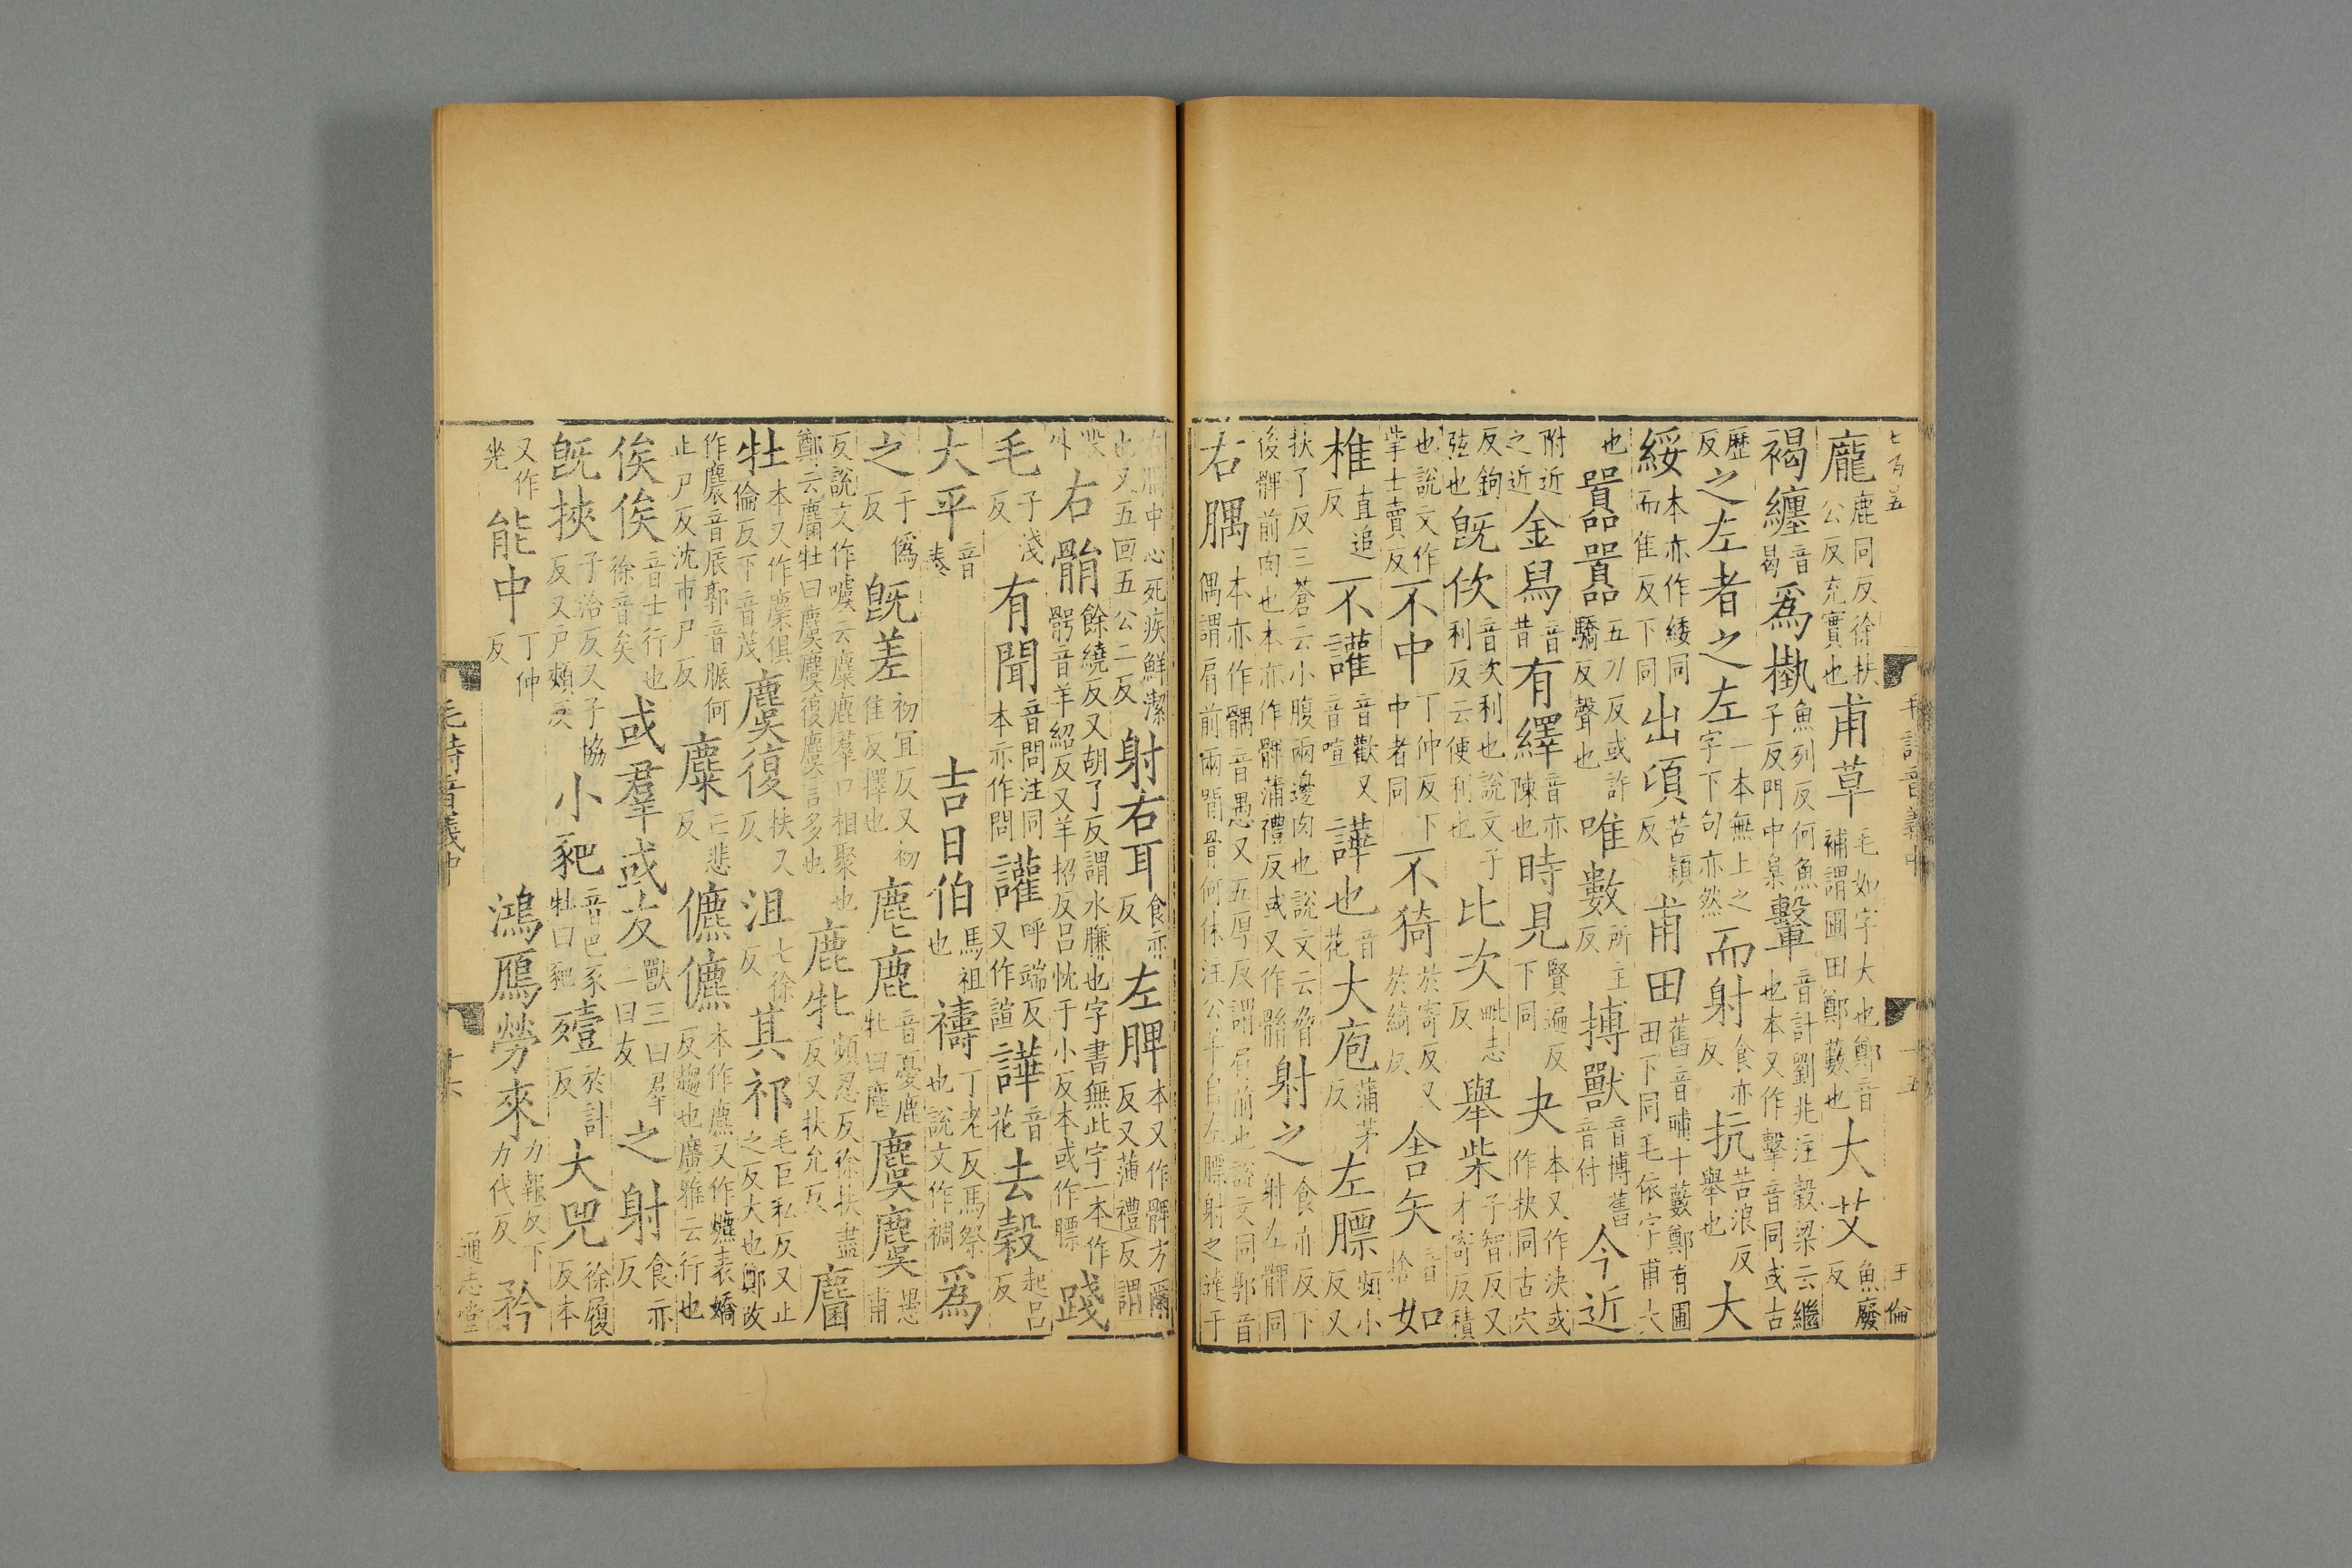 龐鹿同反徐扶公反充實也甫草毛如字大也鄭音補謂圃田鄭藪也大艾魚廢反
褐纏音曷為槸魚列反何魚子反門中臬轚音計劉兆注穀梁云繼也本又作擊音同或古
歷反之左者之左一本無上之字下句亦然而射食亦反抗苦浪反舉也大
綏本亦作緌同而隹反下同出頃苦潁反甫田舊音補十藪鄭有圃田下同毛依字甫大
也嚻嚻五刀反或許驕反聲也唯數所主反搏獸音博舊音付今近
附近之近金舄音昔有繹音亦陳也時見賢遍反下同夬本又作決或作抉同古穴
反鉤弦也既佽音次利也說文子利反云便利也比次毗志反舉柴子智反又才寄反積
也說文作㧘士賣反不中丁仲反下中者同不猗於寄反又於綺反舍矢音捨如
椎直追反不讙音歡又音喧譁也音花大庖蒲茅反左膘頻小反又
扶了反三蒼云小腹兩邊肉也說文云脅後髀前肉也本亦作髀蒲禮反或又作䯚射之食亦反下射左髀同
右腢本亦作髃音愚又五厚反謂肩前也說文同郭音偶謂肩前兩間骨何休注公羊自左膘射之達于
右腢中心死疾鮮潔也又五回五公二反射右耳食亦反左脾本又作髀方爾反又蒲禮反謂
右䯚餘繞反又胡了反謂水膁也字書無此字一本作髎音羊紹反又羊招反呂忱于小反本或作膘踐
毛子淺反有聞音問注同本亦作問讙呼端反又作諠譁音花去穀起呂反
大平音泰吉日伯馬祖也禱丁老反馬祭也說文作禂為
之于偽反既差初宜反又初佳反擇也麀鹿音憂鹿牝曰麀麌麌愚甫
反說文作噳云麋鹿羣口相聚也鄭云麕牡曰麌麌復麌言多也鹿牝頻忍反徐扶盡反又扶允反麕
牡本又作麇俱倫反下音茂麌復扶又反沮七徐反其祁毛巨私反又止之反大也鄭改
作麎音辰郭音脤何止尸反沈市尸反麋亡悲反儦儦本作麃又作爊表嬌反趨也廣雅云行也
俟俟音士行也徐音矣或羣或友獸三曰羣二曰友之射食亦反
既挾子洽反又子協反又戶頰反小豝音巴豕牡曰豝殪於計反大兕徐履反本
又作光能中丁仲反鴻鴈勞來力報反下力代反矜
毛詩音義中
十五
王倫
毛詩音義中
十六
通志堂